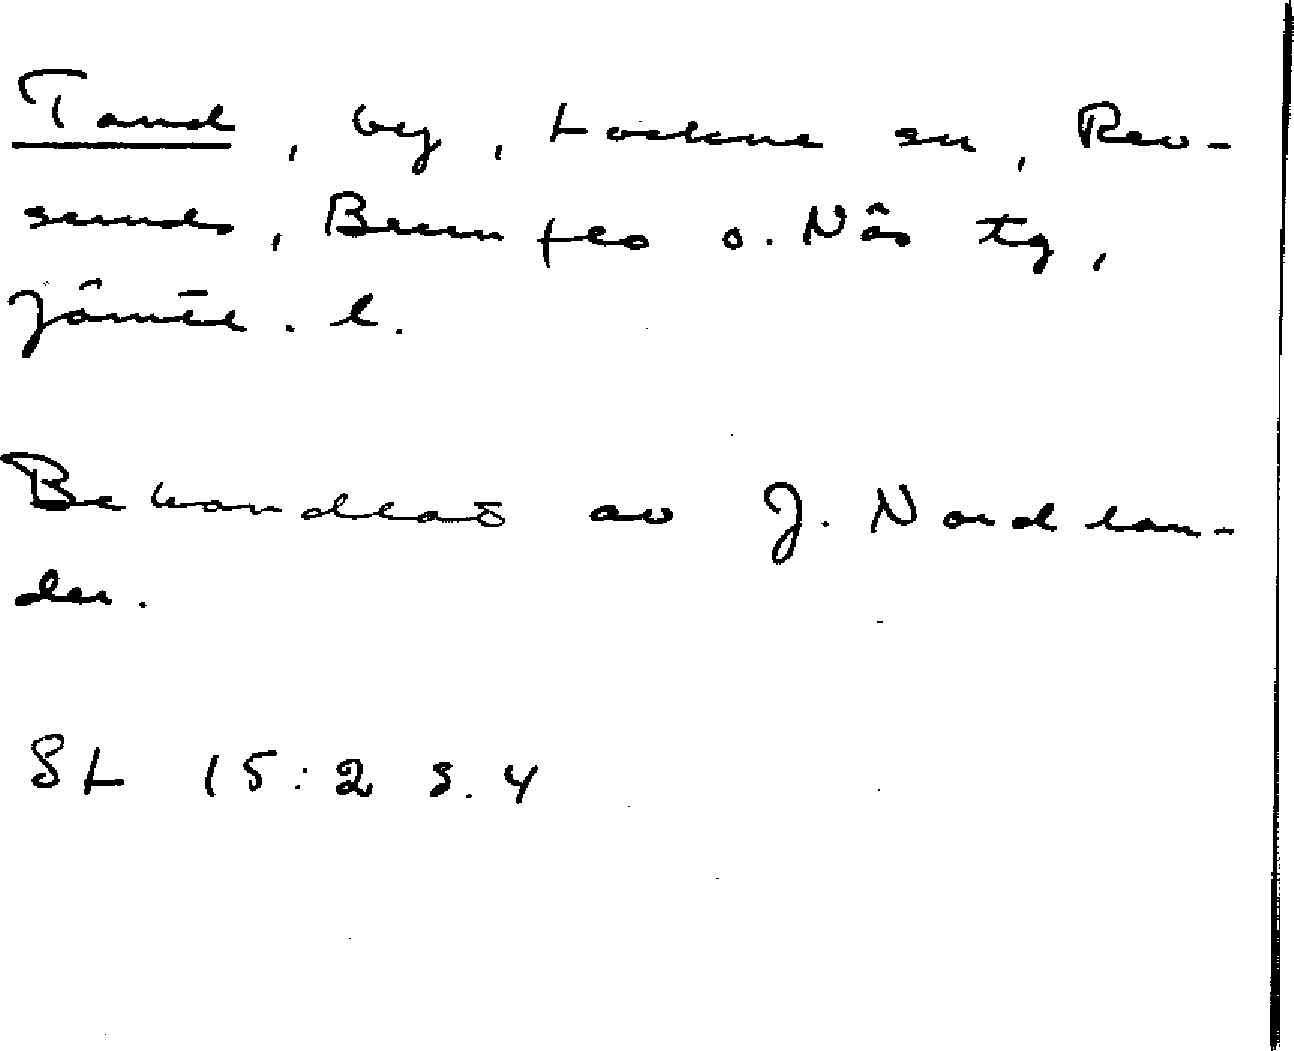 Tand, by, Lockne sn, Rev-
sunds, Brunflo o. Näs tg,
Jämtl. l.
Behandlas av J. Nordlan-
der.
SL 15:2 s. 4